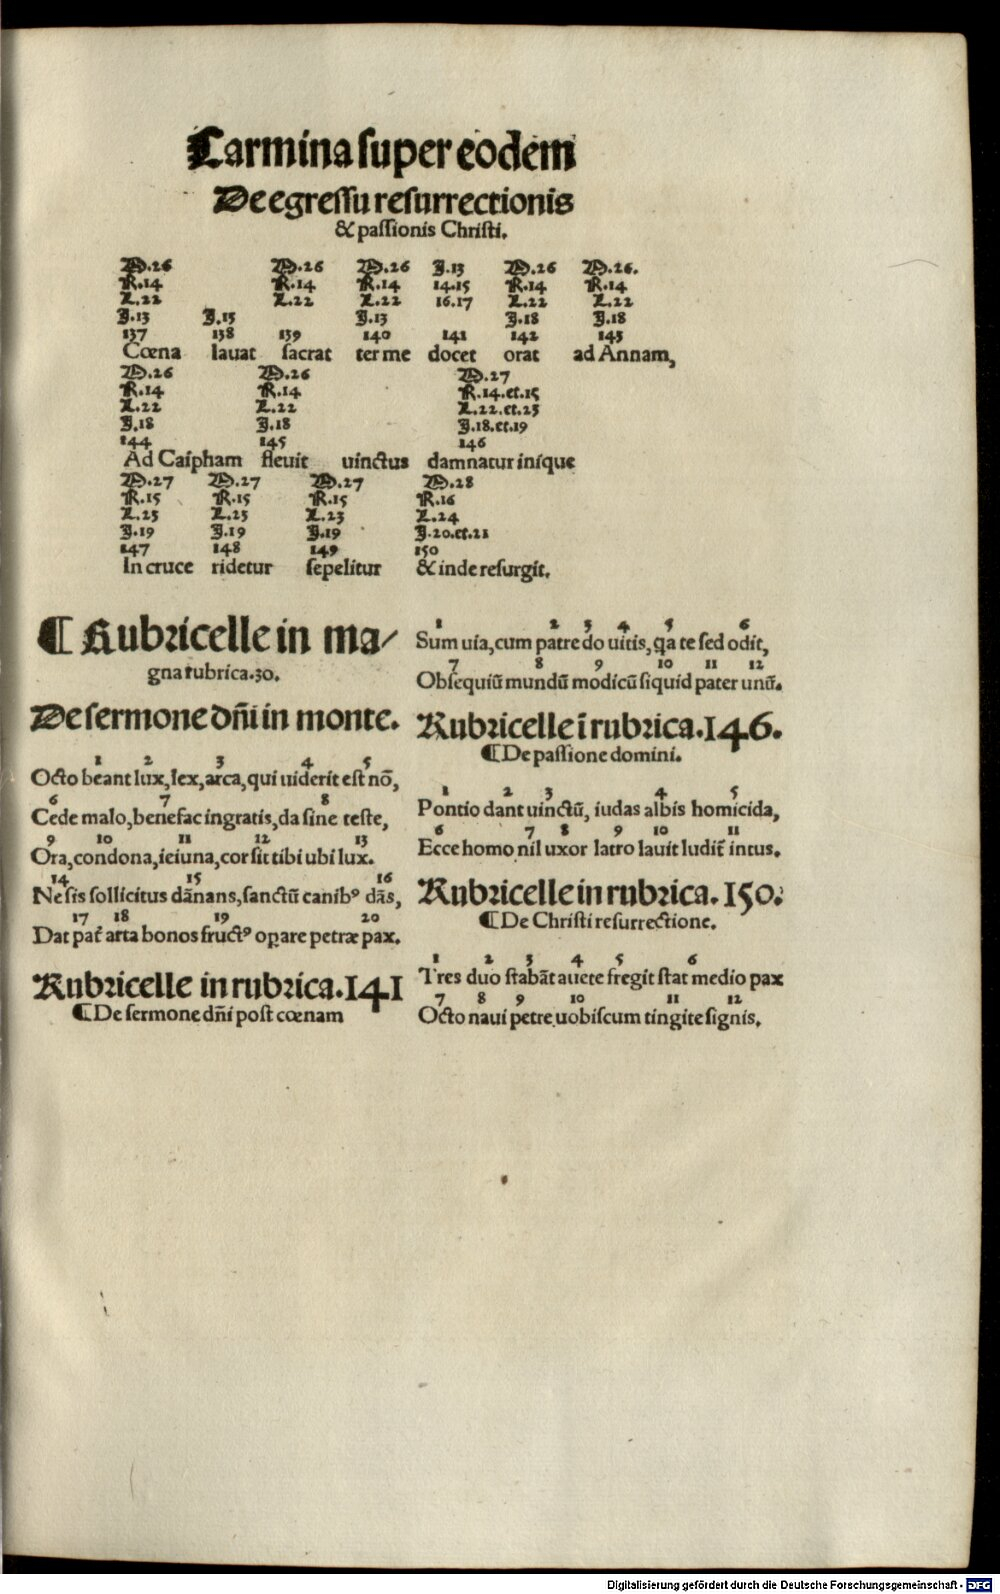 Carmina super eodem
De egressu resurrectionis
& passionis Christi.
M.26 M.26 M.26 J.13 M.26 M.26.
R.14 R.14 R.14 14.15 R.14 R.14
L.22 L.22 L.22 16.17 L.22 L.22
J.13 J.13 J.13 J.18 J.18
137 138 139 140 141 142 143
Cœna lauat sacrat ter me docet orat ad Annam,
M.26 M.26 M.27
R.14 R.14 R.14.et.15
L.22 L.22 L.22.et.23
J.18 J.18 J.18.et.19
144 145 146
Ad Caipham fleuit uinctus damnatur inique
M.27 M.27 M.27 M.28
R.15 R.15 R.15 R.16
L.23 L.23 L.23 L.24
J.19 J.19 J.19 J.20.et.21
147 148 149 150
In cruce ridetur sepelitur & inde resurgit.
¶ Rubricelle in ma/
gna rubrica.30.
De sermone dñi in monte.
1 2 3 4 5
Octo beant lux, lex, arca, qui uiderit est nõ,
6 7 8
Cede malo, benefac ingratis, da sine teste,
9 10 11 12 13
Ora, condona, ieiuna, cor sit tibi ubi lux.
14 15 16
Ne sis sollicitus dãnans, sanctũ canibꝰ dãs,
17 18 19 20
Dat pat̃ arta bonos fructꝰ oꝑare petræ pax.
Rubricelle in rubrica.141
¶De sermone dñi post cœnam
1 2 3 4 5 6
Sum uia, cum patre do uitis, q̃a te sed odit,
7 8 9 10 11 12
Obsequiũ mundũ modicũ siquid pater unũ.
Rubricelle ĩ rubrica.146.
¶De passione domini.
1 2 3 4 5
Pontio dant uinctũ, iudas albis homicida,
6 7 8 9 10 11
Ecce homo nil uxor latro lauit ludit̃ intus.
Rubricelle in rubrica.150.
¶De Christi resurrectione.
1 2 3 4 5 6
Tres duo stabãt auete fregit stat medio pax
7 8 9 10 11 12
Octo naui petre uobiscum tingite signis.
Digitalisierung gefördert durch die Deutsche Forschungsgemeinschaft - DFG